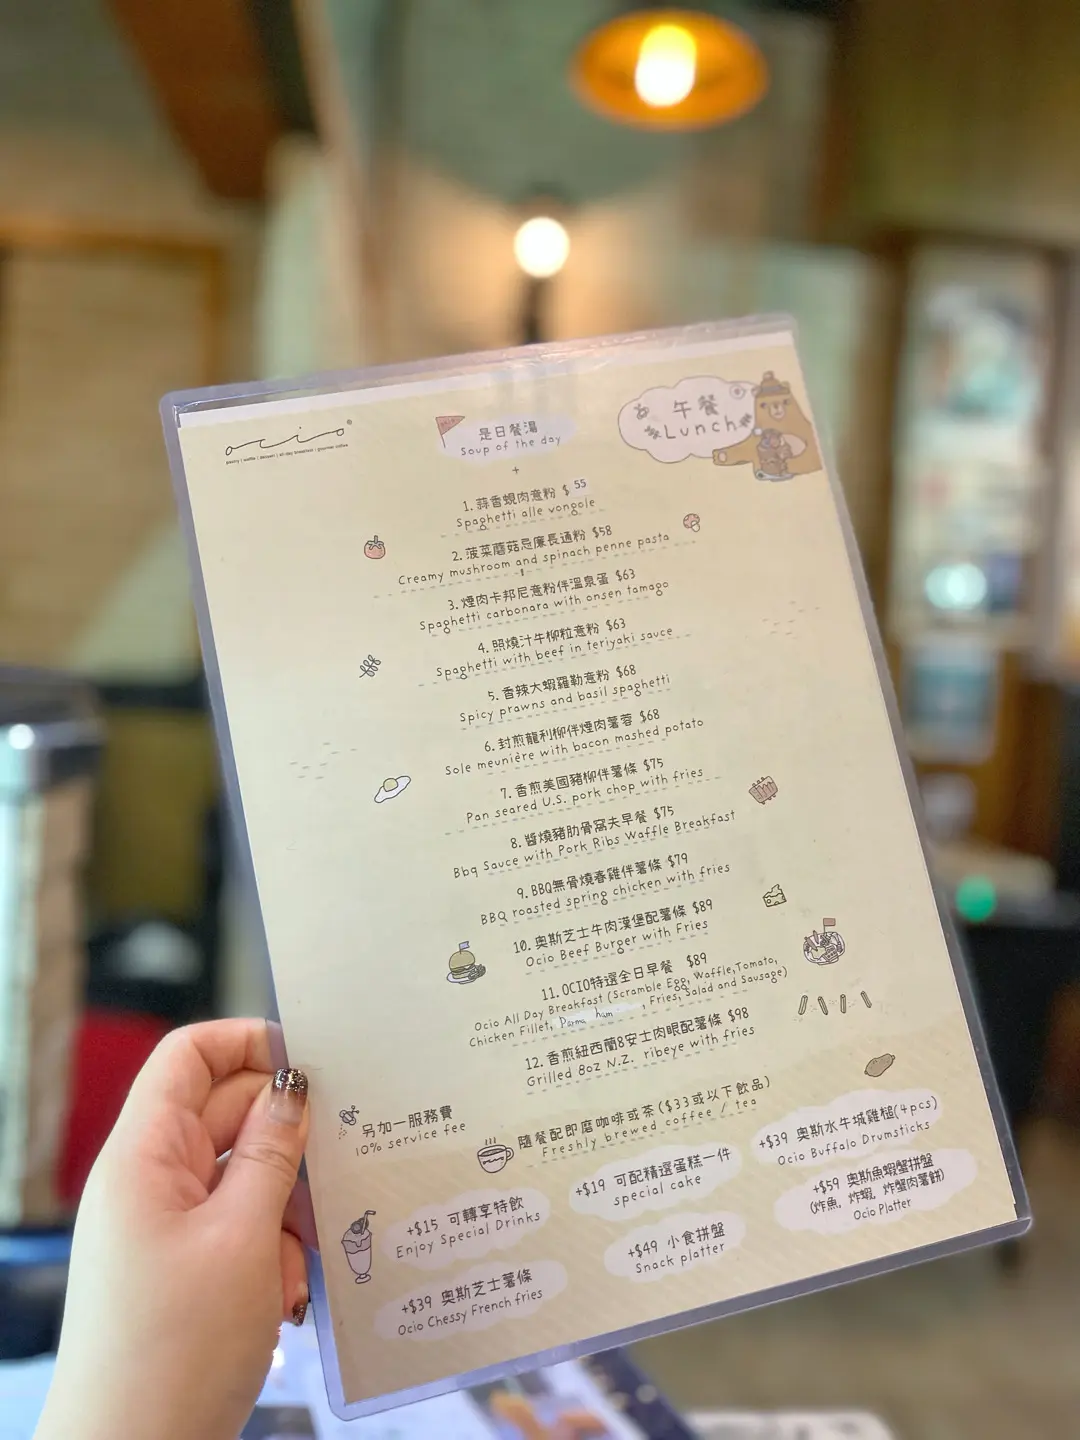 ocio
pastry | waffle | dessert | all-day breakfast | gourmet coffee
午餐
Lunch
是日餐湯
Soup of the day
+
1. 蒜香蜆肉意粉 $55
Spaghetti alle vongole
2. 菠菜蘑菇忌廉長通粉 $58
Creamy mushroom and spinach penne pasta
3. 煙肉卡邦尼意粉伴溫泉蛋 $63
Spaghetti carbonara with onsen tamago
4. 照燒汁牛柳粒意粉 $63
Spaghetti with beef in teriyaki sauce
5. 香辣大蝦羅勒意粉 $68
Spicy prawns and basil spaghetti
6. 封煎龍利柳伴煙肉薯蓉 $68
Sole meunière with bacon mashed potato
7. 香煎美國豬柳伴薯條 $75
Pan seared U.S. pork chop with fries
8. 醬燒豬肋骨窩夫早餐 $75
Bbq Sauce with Pork Ribs Waffle Breakfast
9. BBQ無骨燒春雞伴薯條 $79
BBQ roasted spring chicken with fries
10. 奧斯芝士牛肉漢堡配薯條 $89
Ocio Beef Burger with Fries
11. OCIO特選全日早餐 $89
Ocio All Day Breakfast (Scramble Egg, Waffle, Tomato,
Chicken Fillet, Parma ham, Fries, Salad and Sausage)
12. 香煎紐西蘭8安士肉眼配薯條 $98
Grilled 8oz N.Z. ribeye with fries
另加一服務費
10% service fee
隨餐配即磨咖啡或茶($33或以下飲品)
Freshly brewed coffee / tea
+$15 可轉享特飲
Enjoy Special Drinks
+$19 可配精選蛋糕一件
special cake
+$39 奧斯水牛城雞槌(4pcs)
Ocio Buffalo Drumsticks
+$39 奧斯芝士薯條
Ocio Chessy French fries
+$49 小食拼盤
Snack platter
+$59 奧斯魚蝦蟹拼盤
(炸魚, 炸蝦, 炸蟹肉薯餅)
Ocio Platter